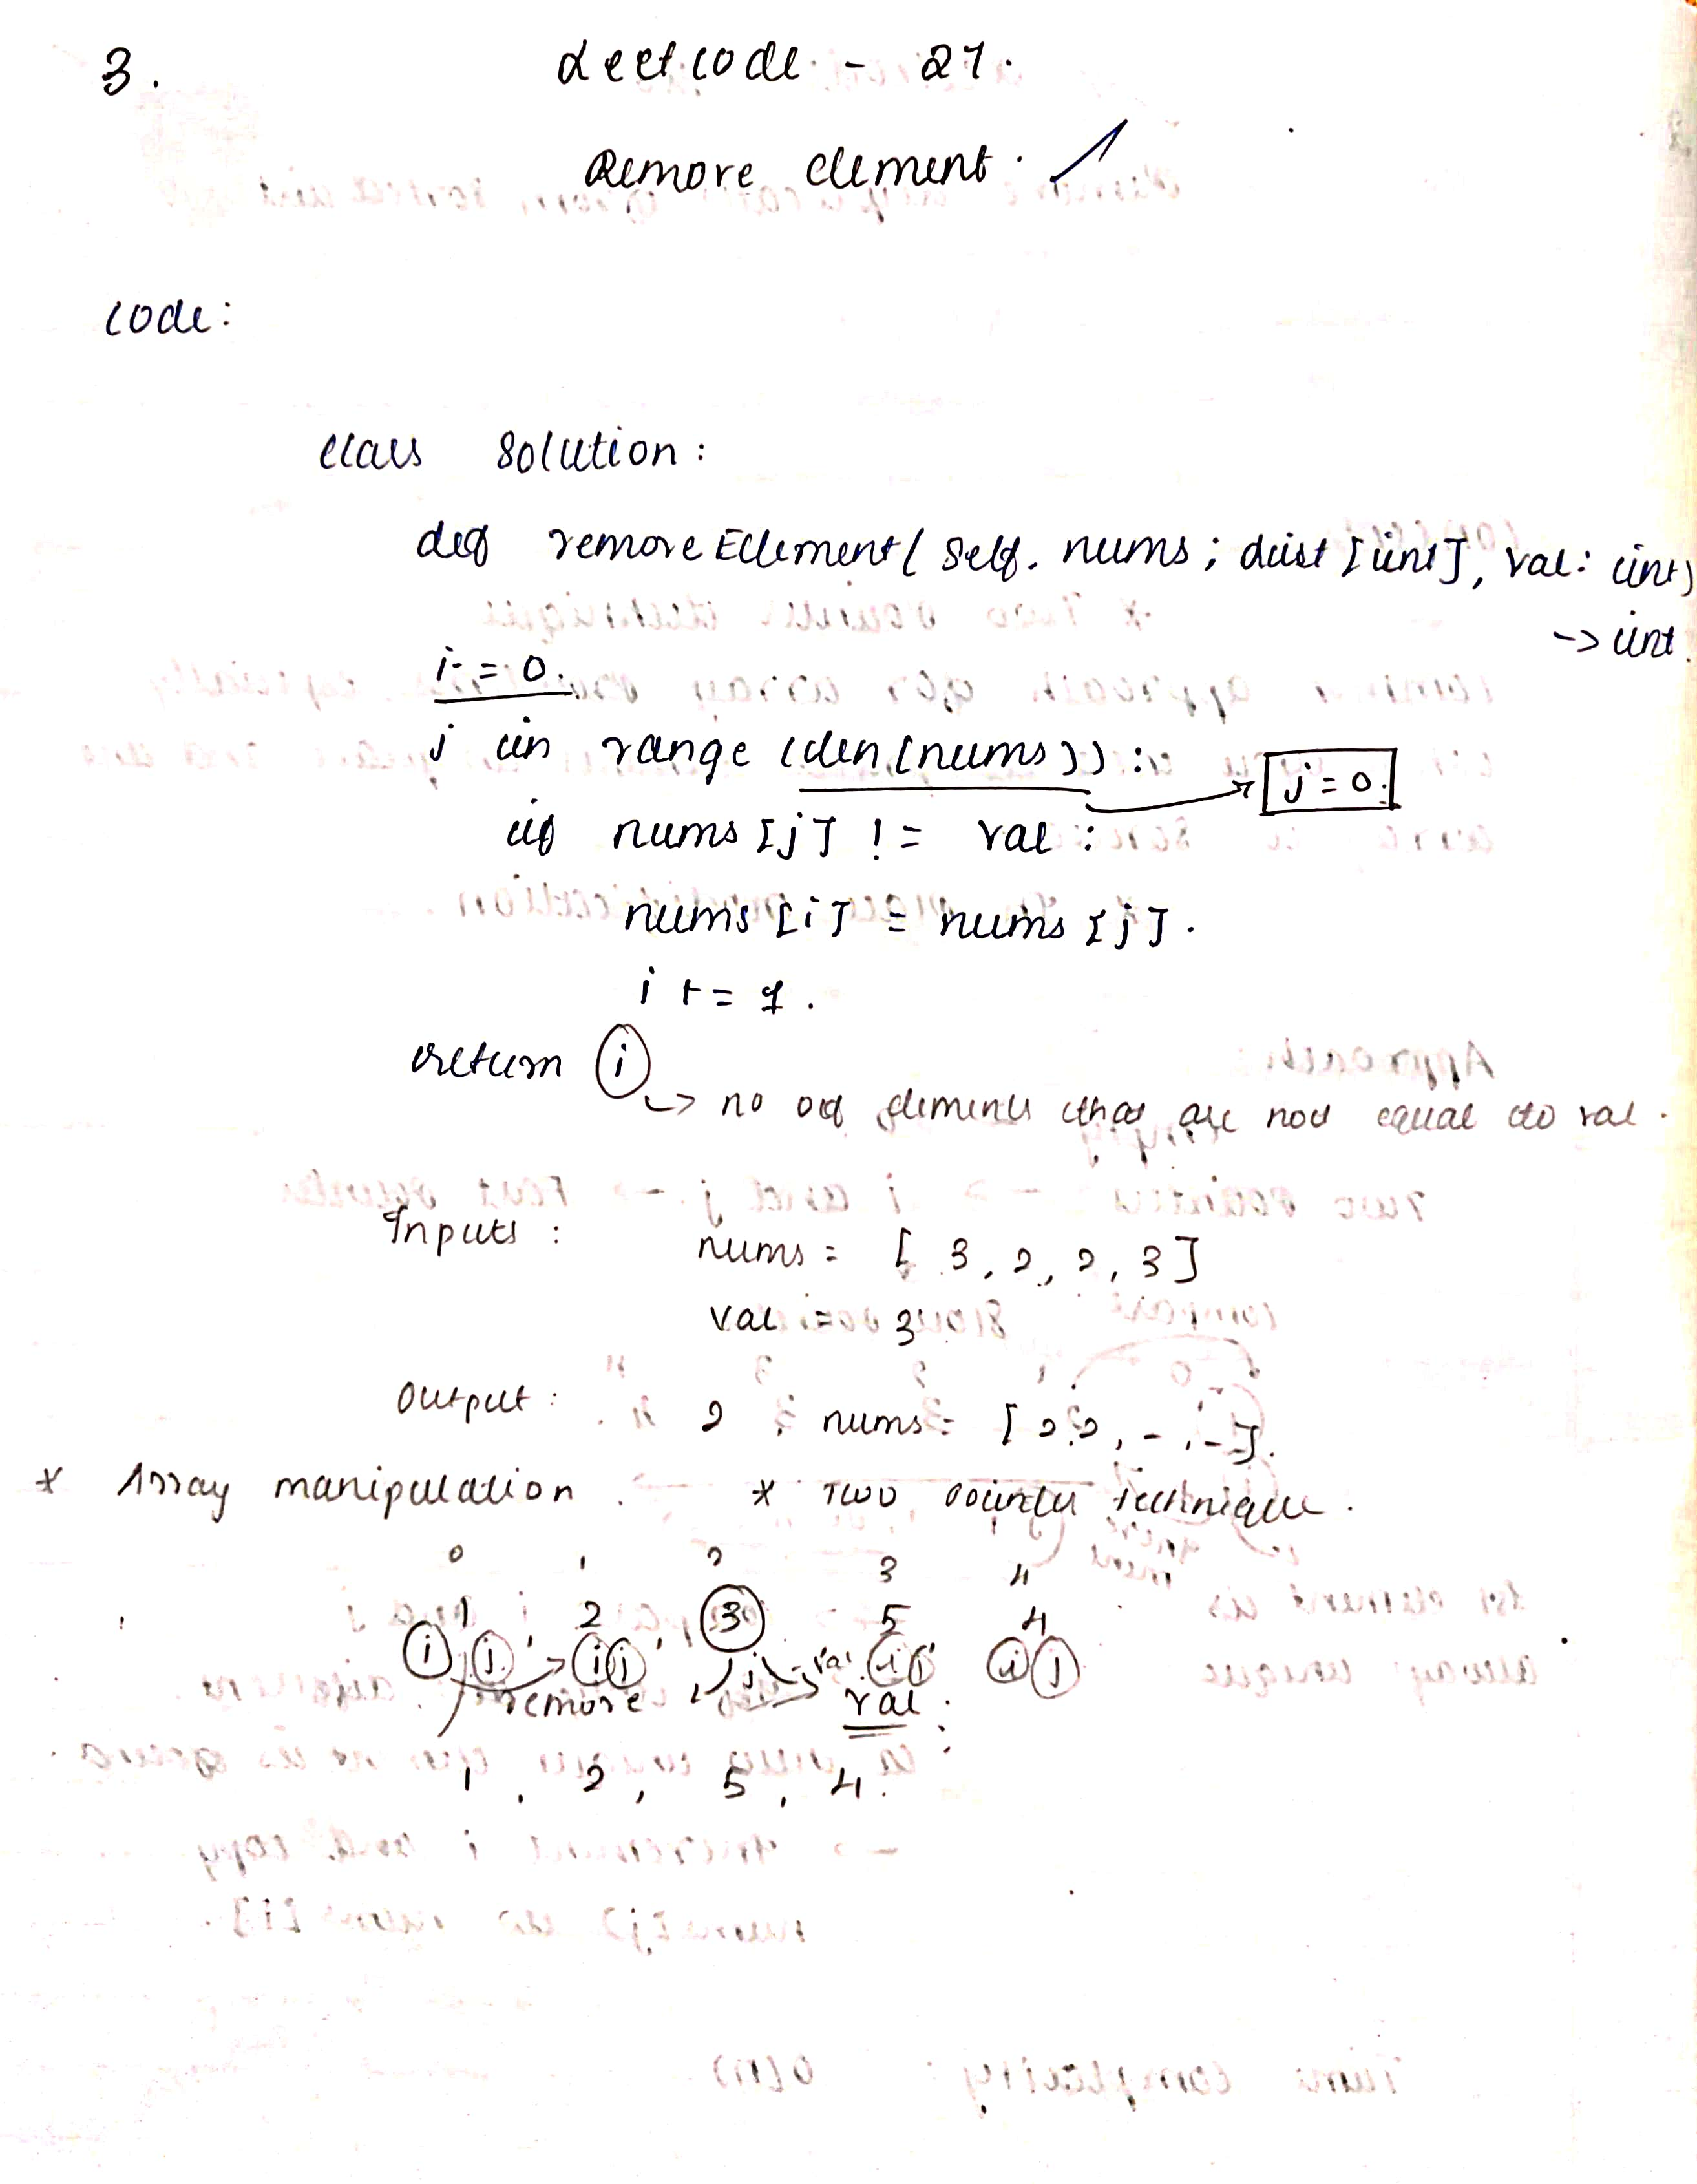 3. Leetcode - 27.
Remove Element.
Code:
class Solution:
def removeElement( self. nums ; List [int], val: int)
-> int.
i = 0.
j in range (len(nums)) :
j = 0.
if nums [j] != val :
nums [i] = nums [j].
i += 1.
return i
-> no of elements that are not equal to val.
Inputs : nums = [ 3, 2, 2, 3]
val = 3
Output : 2 ; nums = [ 2 2, -, -].
* Array manipulation. * Two pointer Technique.
0 1 2 3 4
1 2 3 5 4
i j , i j , j val i j i j
remove val :
1 , 2 , 5 , 4.